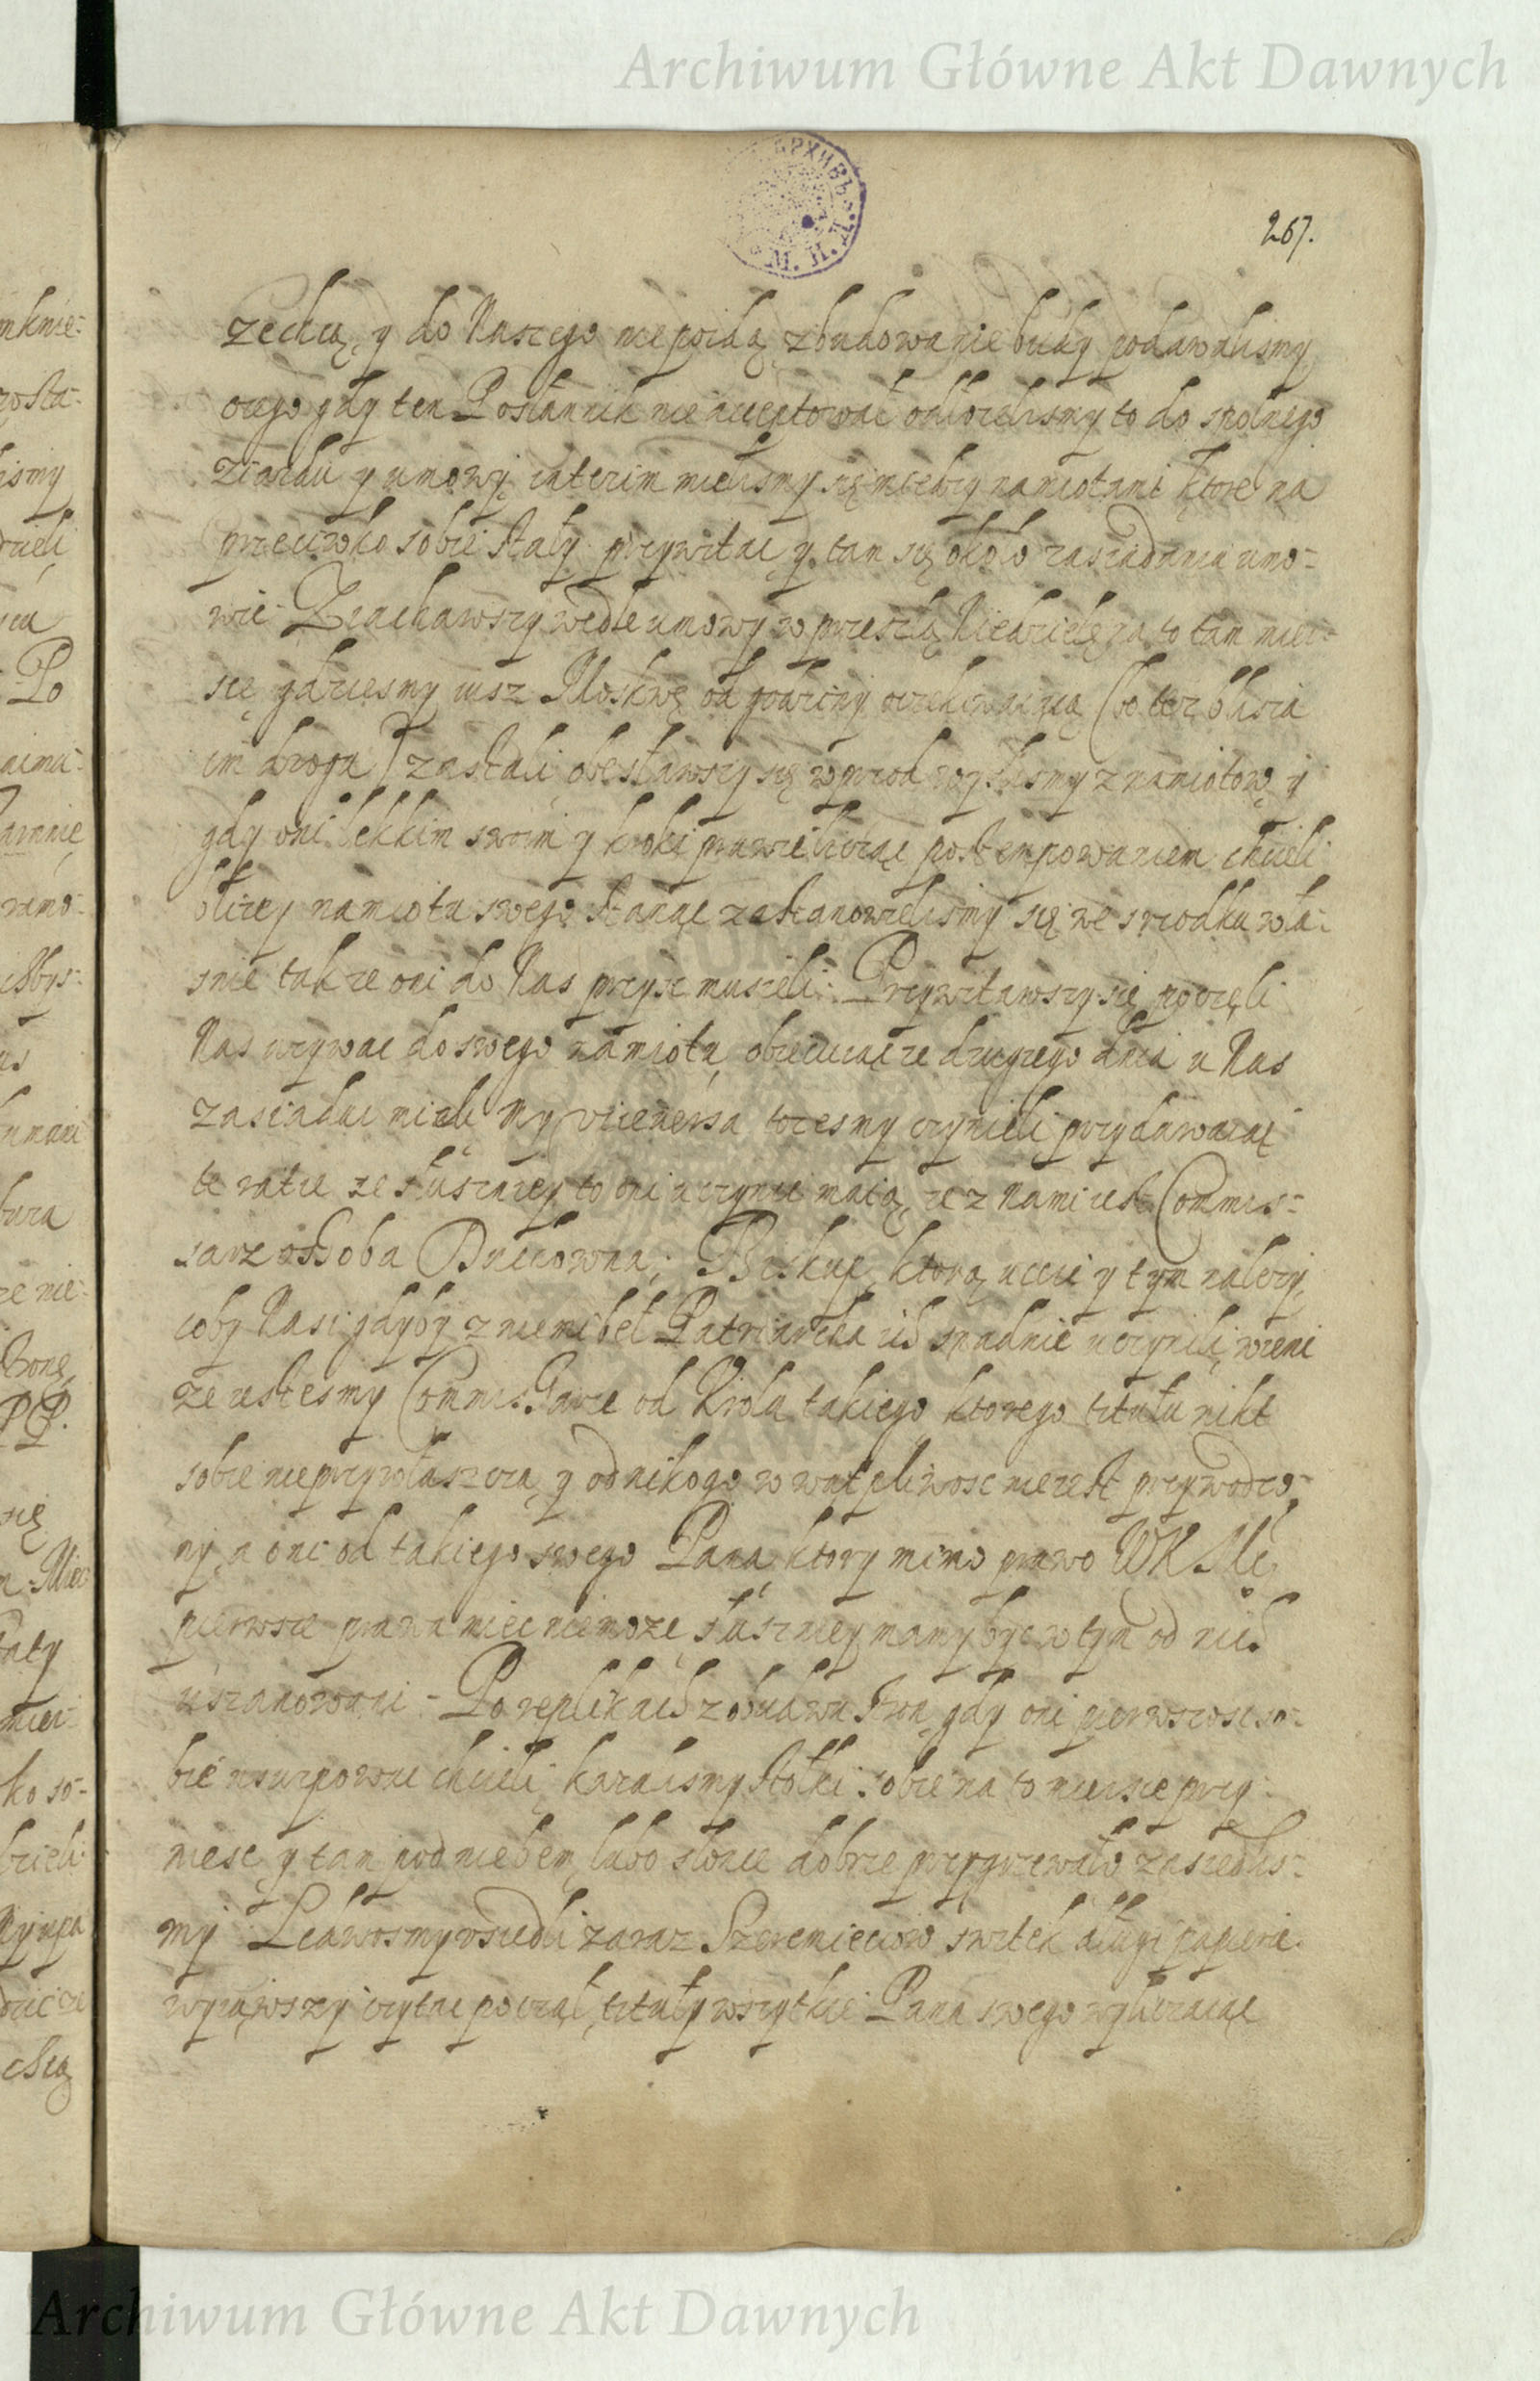 Archiwum Główne Akt Dawnych
267.
zechcą, y do Naszego nie poidą, zbudowanie budy podawalismy
czego gdy ten Posłannik nie acceptował odłozelismy to do spolnego
ziazdu y umowy, interim mielismy się miedzy namiotami ktore na
przeciwko sobie stały przywitac y tam się około zasiadania umo-
wic. Ziachawszy wedle umowy w przeszłą Niedzielę na to tam miei-
sce gdziesmy iusz Moskwę od godziny oczekiwaiącą (bo tesz blisza
im droga) zastali, obesławszy się wprzod wyszlismy z namiotow y
gdy oni lekkim swoim y kroki prawie licząc postempowaniem chcieli
blizey namiotu swego stanąc zastanowielismy się we srzodku wła-
snie tak ze oni do Nas przysc musieli. Przywitawszy się poczęli
Nas wzywac do swego namiotu, obiecuiąc ze drugiego dnia u Nas
zasiadac mieli. My viceversa tozesmy czynieli przydawaiąc
te ratie ze słuszniey to oni uczynic maią, ze z Nami iest Commis-
sarz ossoba Duchowna, Biskup, ktorą uccić y tym nalezy,
coby Nasi gdyby z niemi beł Patriarcha ich snadnie uczynili, wieni
ze iestesmy Commissarze od Krola takiego, ktorego titułu nikt
sobie nieprzywłaszcza, y od nikogo w wątpliwosc nie iest przywodzo-
ny, a oni od takiego swego Pana, ktory mimo prawo WKMci
pierwsze prawa miec niemoze, słuszniey mamy byc w tym od nich
uszanowani. Po replikach z obudwu stron, gdy oni pierwszosc so-
bie usurpowac chcieli, kazalismy stołki sobie na to mieisce przy-
niesc, y tam pod niebem, lubo słonce dobrze przygrzewało zasiedlis-
my. Ledwosmy usiedli zaraz Szeremieciow switek długi papieru
wyiąwszy czytac począł, tituły wszytkie Pana swego wyliczaiąc
Archiwum Główne Akt Dawnych